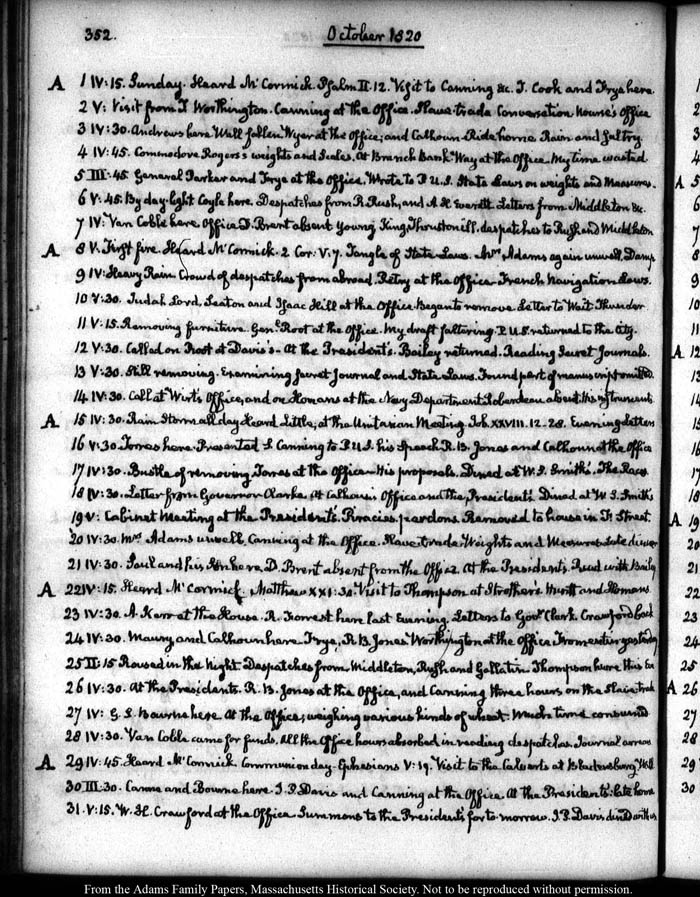 352.
October 1820
A 1 IV:15. Sunday. Heard McCormick. Psalm II.12. Visit to Canning &c. T. Cook and Frye here.
2 V: Visit from T Worthington. Canning at the Office. Slave-trade Conversation House's Office
3 IV:30. Andrews here Wall fallen. Wyer at the Office; and Calhoun. Ride home Rain and Sultry
4 IV:45. Commodore Rogers's weights and Scales. At Branch Bank Way at the Office. My time wasted
5 III:45 General Parker and Frye at the Office. Wrote to P.U.S. State Laws on weights and Measures.
6 V:45. By day-light Coyle here. Despatches from R. Rush, and A H Everett. Letters from Middleton &c.
7 IV: Van Coble here. Office D. Brent absent young King Thruston ill. despatches to Rush and Middleton
A 8 V. First fire. Heard McCormick. 2 Cor: V:7. Tangle of State Laws. Mrs Adams again unwell. Damp
9 IV: Heavy Rain. Crowd of despatches from abroad. Petry at the Office. French Navigation Laws.
10 V:30. Judah Lord, Seaton and Isaac Hill at the Office. Began to remove. Letter to Wait. Thunder
11 V:15. Removing furniture. Genl. Root at the Office. My draft faltering. P.U.S. returned to the City.
12 V:30. Called on Root at Davis's. At the President's. Bailey returned. Reading Secret Journals.
13 V:30. Still removing. Examining Secret Journal and State Laws. Found part of manuscript omitted.
14 IV:30. Call at Wirt's Office, and on Homans at the Navy Department. Roberdeau about His instruments
A 15 IV:30. Rain Storm all day Heard Little, at the Unitarian Meeting Job. XXVIII.12.28. Evening letters
16 V:30. Torres here. Presented S Canning to P.U.S. his Speech R. B. Jones and Calhoun at the Office
17 IV:30. Bustle of removing. Torres at the Office. His proposals. Dined at W. S. Smith's. The Races
18 IV:30. Letter from Governor Clarke. At Calhoun's Office and the President's Dined at W. S. Smith's
19 V: Cabinet Meeting at the President's. Piracies pardons. Removed to house in F. Street.
20 IV:30. Mrs Adams unwell. Canning at the Office. Slave trade. Weights and Measures Late dinner
21 IV:30. Paul and his Son here. D. Brent absent from the Office. At the Presidents. Read with Bailey
A 22 IV:15. Heard McCormick. Matthew XXI:30 Visit to Thompson at Strother's Hewitt and Homans
23 IV:30. A. Kerr at the House. R. Forrest here last Evening. Letters to Govr. Clark. Crawford back
24 IV:30. Maury and Calhoun here. Frye, R. B. Jones Worthington at the Office yesterday
25 II:15 Roused in the Night. Despatches from Middleton, Rush and Gallatin Thompson here this Eve
26 IV:30. At the Presidents. R. B. Jones at the Office, and Canning three hours on the Slave trade
27 IV: G. S. Bourne here. At the Office; weighing various kinds of wheat. Much time consumed
28 IV:30. Van Coble came for funds. All the Office hours absorbed in reading despatches. Journal arrear
A 29 IV:45. Heard McCormick Communion day. Ephesians V:19. Visit to the Calverts at Bladensburg. Well
30 III:30. Canna and Bourne here. J. P. Davis and Canning at the Office. At the President's; late home
31. V:15. W. H. Crawford at the Office Summons to the President's for to-morrow. J. P. Davis dined with us
A
A
A
A
From the Adams Family Papers, Massachusetts Historical Society. Not to be reproduced without permission.